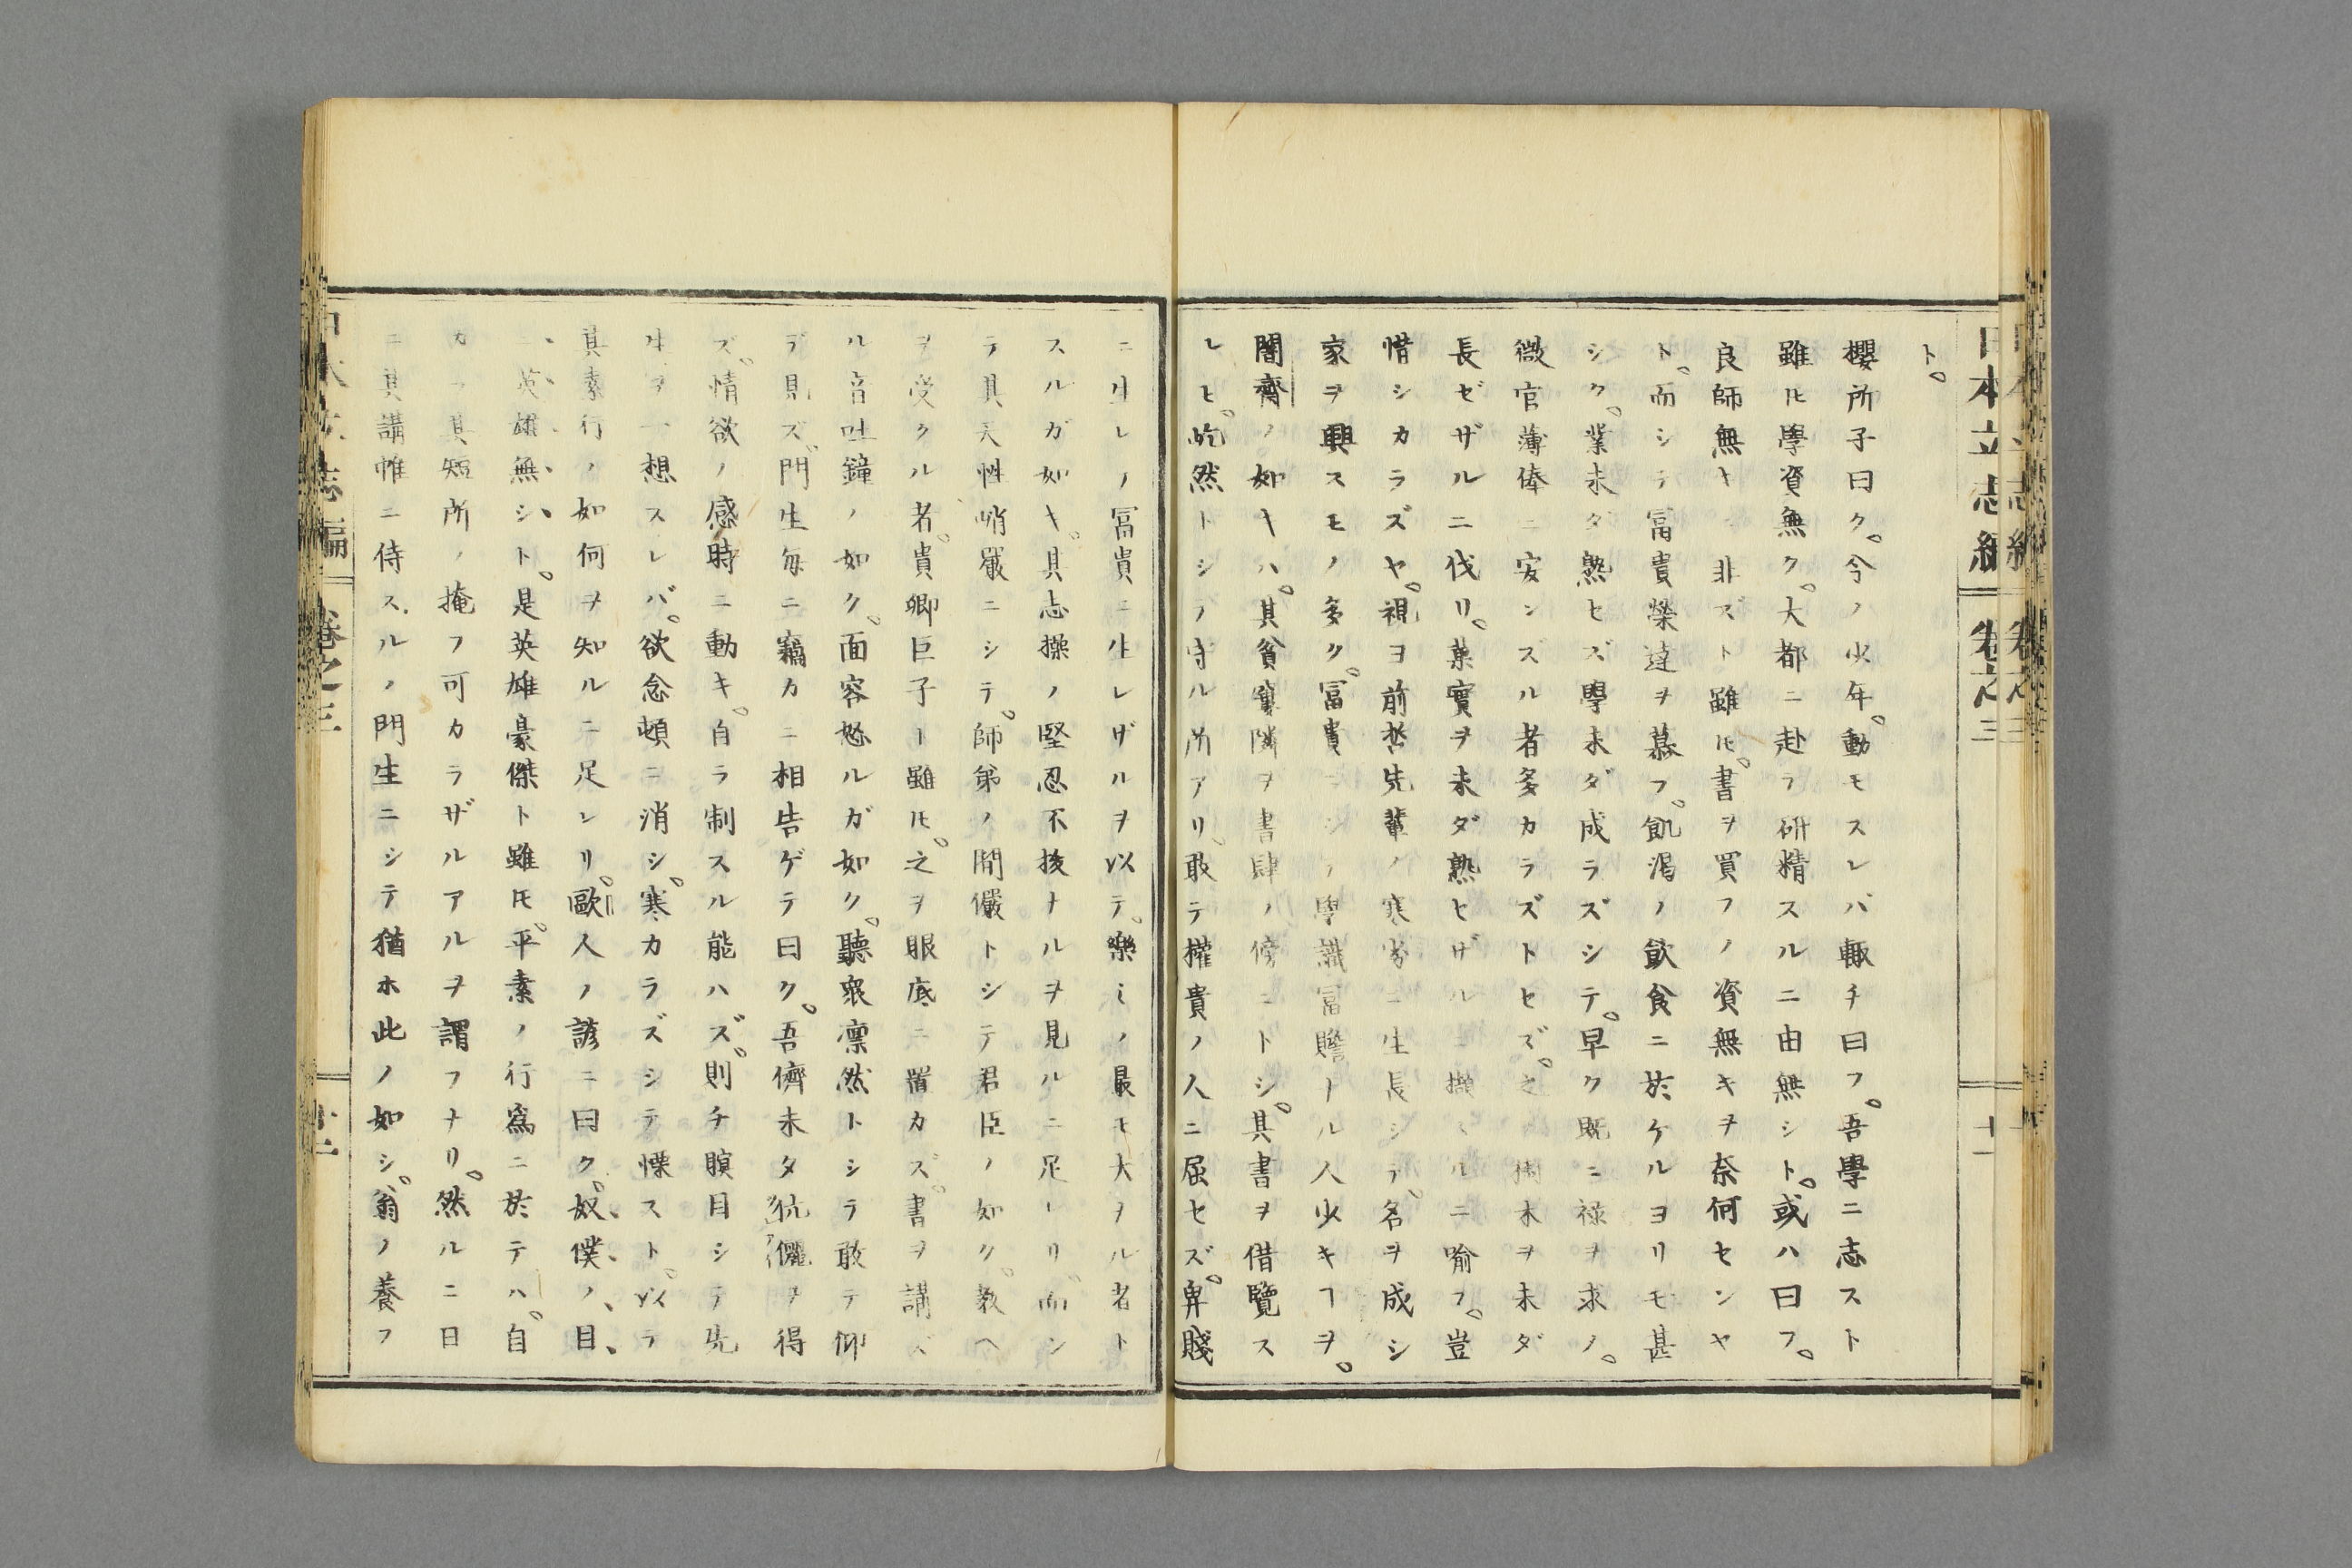 日本立志編 卷之三 十一
ト。
櫻所子曰ク。今ノ少年。動モスレバ輙チ曰フ。吾學ニ志スト
雖𪜈學資無ク。大都ニ赴ラ研精スルニ由無シト。或ハ曰フ。
良師無キニ非ズト雖𪜈。書ヲ買フノ資無キヲ奈何センヤ
ト。而シテ冨貴榮達ヲ慕フ。飢渇ノ飮食ニ於ケルヨリモ甚
シク。業未タ熟セズ學未ダ成ラズシテ。早ク既ニ禄ヲ求ノ。
微官薄俸ニ安ンズル者多カラズトセズ。之 樹木ヲ未ダ
長ゼザルニ伐リ。菓實ヲ未ダ熟セザルニ ルニ喻フ。豈
惜シカラズヤ。視ヨ前哲先輩ノ寒 ニ生長シテ。名ヲ成シ
家ヲ興スモノ多ク。冨貴ニシテ學識冨贍ナル人少キヿヲ。
闇齋ノ如キハ。其貧窶隣ヲ書肆ノ傍ニトシ。其書ヲ借覽ス
レ𪜈。屹然トシテ守ル所アリ。敢テ權貴ノ人ニ屈セズ。卑賤
ニ生レノ冨貴ニ生レザルヲ以テ。樂ミノ最モ大ヲル者ト
スルガ如キ。其志操ノ堅忍不拔ナルヲ見ルニ足レリ。而シ
テ其天性峭嚴ニシテ。師弟ノ間儼トシテ君臣ノ如ク。教ヘ
ヲ受クル者。貴卿巨子ト雖𪜈。之ヲ眼底ニ置カズ。書ヲ講ズ
ル音吐鐘ノ如ク。面容怒ルガ如ク。聽衆凛然トシラ敢テ仰
デ見ズ。門生毎ニ竊カニ相告ゲラ曰ク。吾儕未タ伉儷ヲ得
ズ。情欲ノ感時ニ動キ。自ラ制スル能ハズ。則チ瞑目シテ先
生ヲ一想スレバ。欲念頓ニ消シ。寒カラズシテ慄スト。以ラ
其素行ノ如何ヲ知ルニ足レリ。歐人ノ諺ニ曰ク。奴僕ノ目
ニ英雄無シト。是英雄豪傑ト雖𪜈。平素ノ行爲ニ於テハ。自
カラ其短所ノ掩フ可カラザルアルヲ謂フナリ。然ルニ日
ニ其講帷ニ侍スルノ門生ニシテ猶ホ此ノ如シ。翁ノ養フ